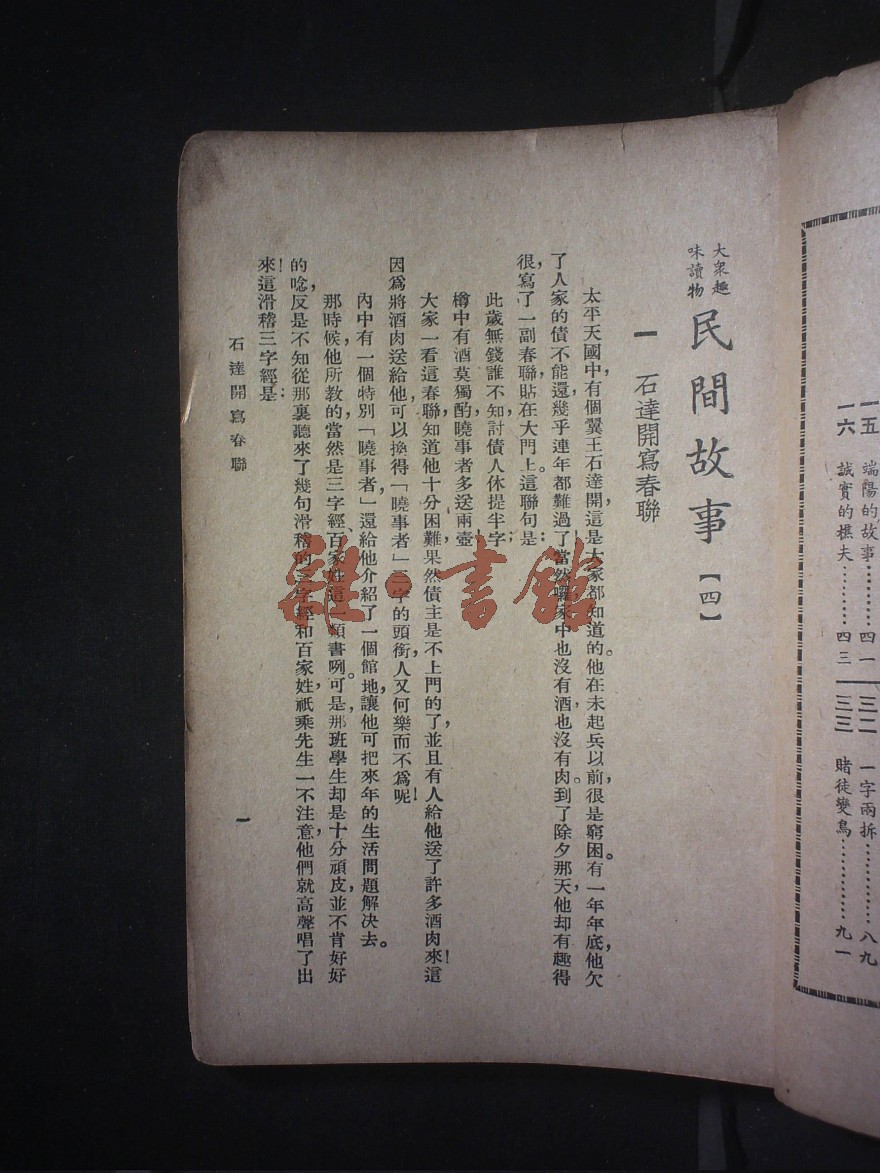 大衆趣
味讀物
民間故事【四】
一 石達開寫春聯
太平天國中,有個翼王石達開,這是大家都知道的。他在未起兵以前,很是窮困。有一年年底,他欠
了人家的債不能還,幾乎連年都難過了,當然囉,家中也沒有酒,也沒有肉。到了除夕那天,他却有趣得
很,寫了一副春聯,貼在大門上。這聯句是:
此歲無錢誰不知,討債人休提半字;
樽中有酒莫獨酌,曉事者多送兩壺。
大家一看這春聯,知道他十分困難,果然債主是不上門的了,並且有人給他送了許多酒肉來!這
因爲將酒肉送給他,可以換得「曉事者」三字的頭銜,人又何樂而不爲呢!
內中有一個特別「曉事者」,還給他介紹了一個館地,讓他可把來年的生活問題解决去。
那時候,他所教的,當然是三字經、百家姓這一類書咧。可是,那班學生却是十分頑皮,並不肯好好
的唸,反是不知從那裏聽來了幾句滑稽的三字經和百家姓,祇乘先生一不注意,他們就高聲唱了出
來!這滑稽三字經是:
石達開寫春聯
一
一五 端陽的故事………四一
一六 誠實的樵夫………四三
三二 一字兩拆…………八九
三三 賭徒變鳥…………九一
雜·書館